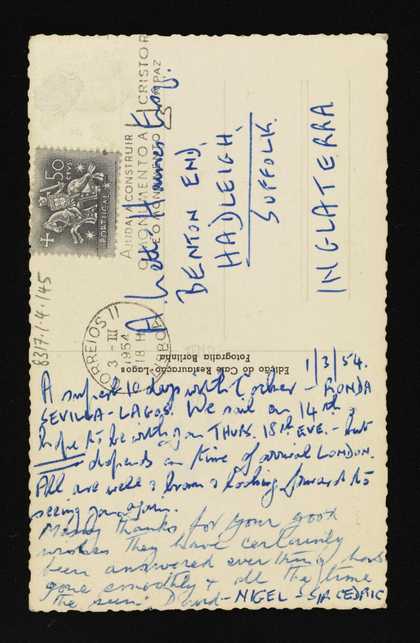 AJUDAI A CONSTRUIR
O MONUMENTO A CRISTO REI
PAZ
50
CTVS
PORTUGAL
CORREIOS
3 - III
1954
18 H
A Lett Haines Esq.
BENTON END,
HADLEIGH,
SUFFOLK.
INGLATERRA
8317.1.4.145
Edição do Café Restauração-Lagos
Fotografia Berlinha
1/3/54.
A superb 10 days with Cedric - RONDA
SEVILLA - LAGOS. We sail on 14th &
hope to be with you THURS. 18th EVE. - but
depends on time of arrival LONDON.
All are well & brown & looking forward to
seeing you again.
Many thanks for your good
wishes they have certainly
been answered everything has
gone smoothly & all the time
the sun. David - NIGEL - SIR CEDRIC